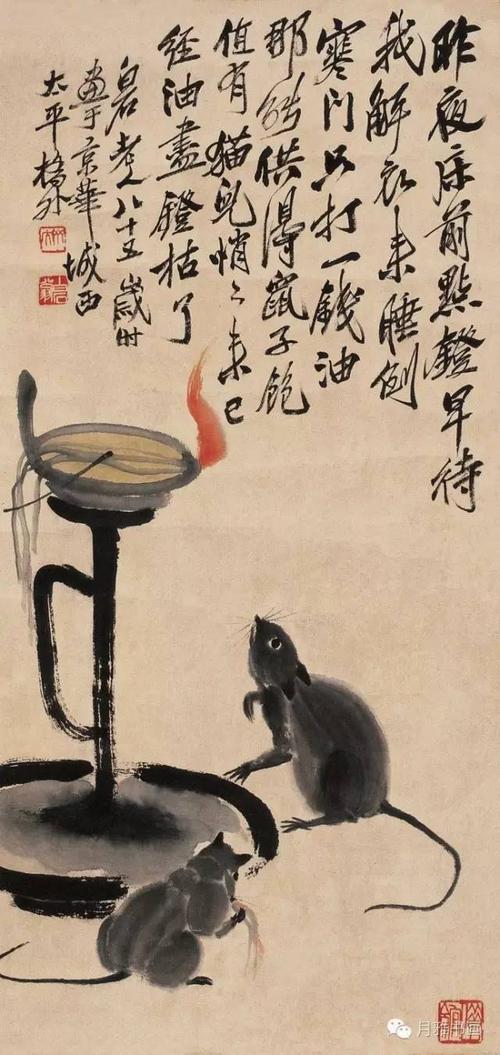 昨夜床前點鐙早待
我解衣来睡倒
寒门只打一錢油
那能供得鼠子飽
值有貓兒悄々来已
經油盡鐙枯了
白石老人八十五歲时
畫于京華城西
太平橋外
月雅书画